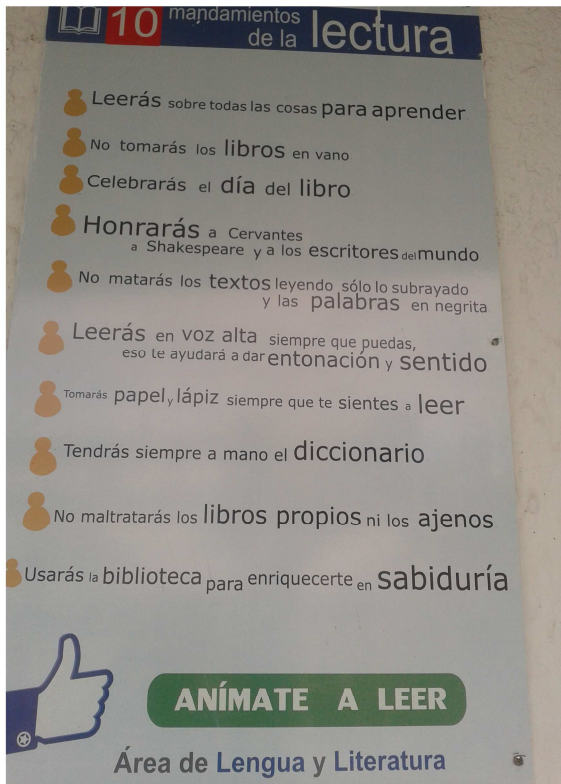 10 mandamientos
de la lectura
Leerás sobre todas las cosas para aprender
No tomarás los libros en vano
Celebrarás el día del libro
Honrarás a Cervantes
a Shakespeare y a los escritores del mundo
No matarás los textos leyendo sólo lo subrayado
y las palabras en negrita
Leerás en voz alta siempre que puedas,
eso te ayudará a dar entonación y sentido
Tomarás papel y lápiz siempre que te sientes a leer
Tendrás siempre a mano el diccionario
No maltratarás los libros propios ni los ajenos
Usarás la biblioteca para enriquecerte en sabiduría
ANÍMATE A LEER
Área de Lengua y Literatura